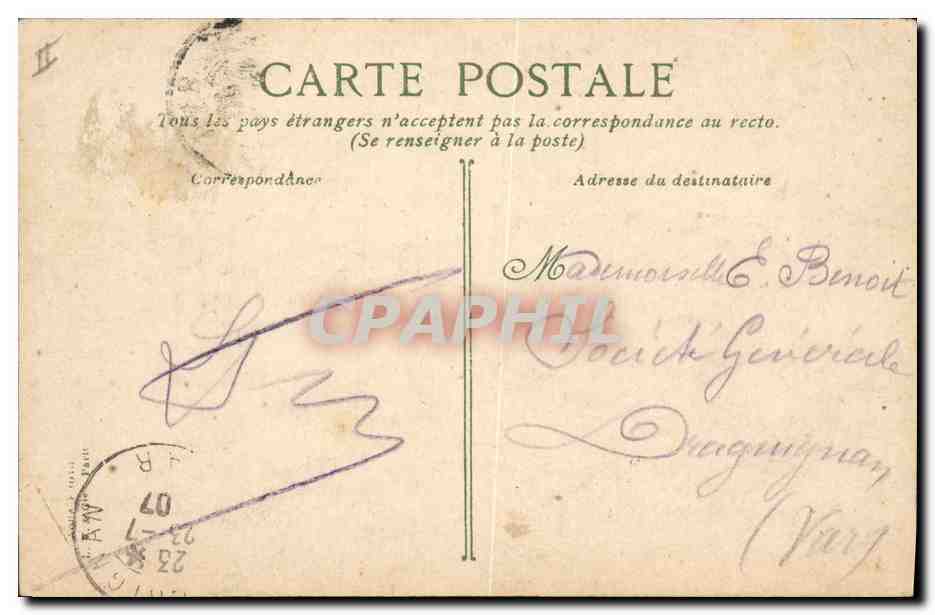 II
CARTE POSTALE
Tous les pays étrangers n'acceptent pas la correspondance au recto.
(Se renseigner à la poste)
Correspondance
Adresse du destinataire
Mademoiselle E. Benoit
Société Générale
Draguignan
(Var)
CPAPHIL
23
23-7
07